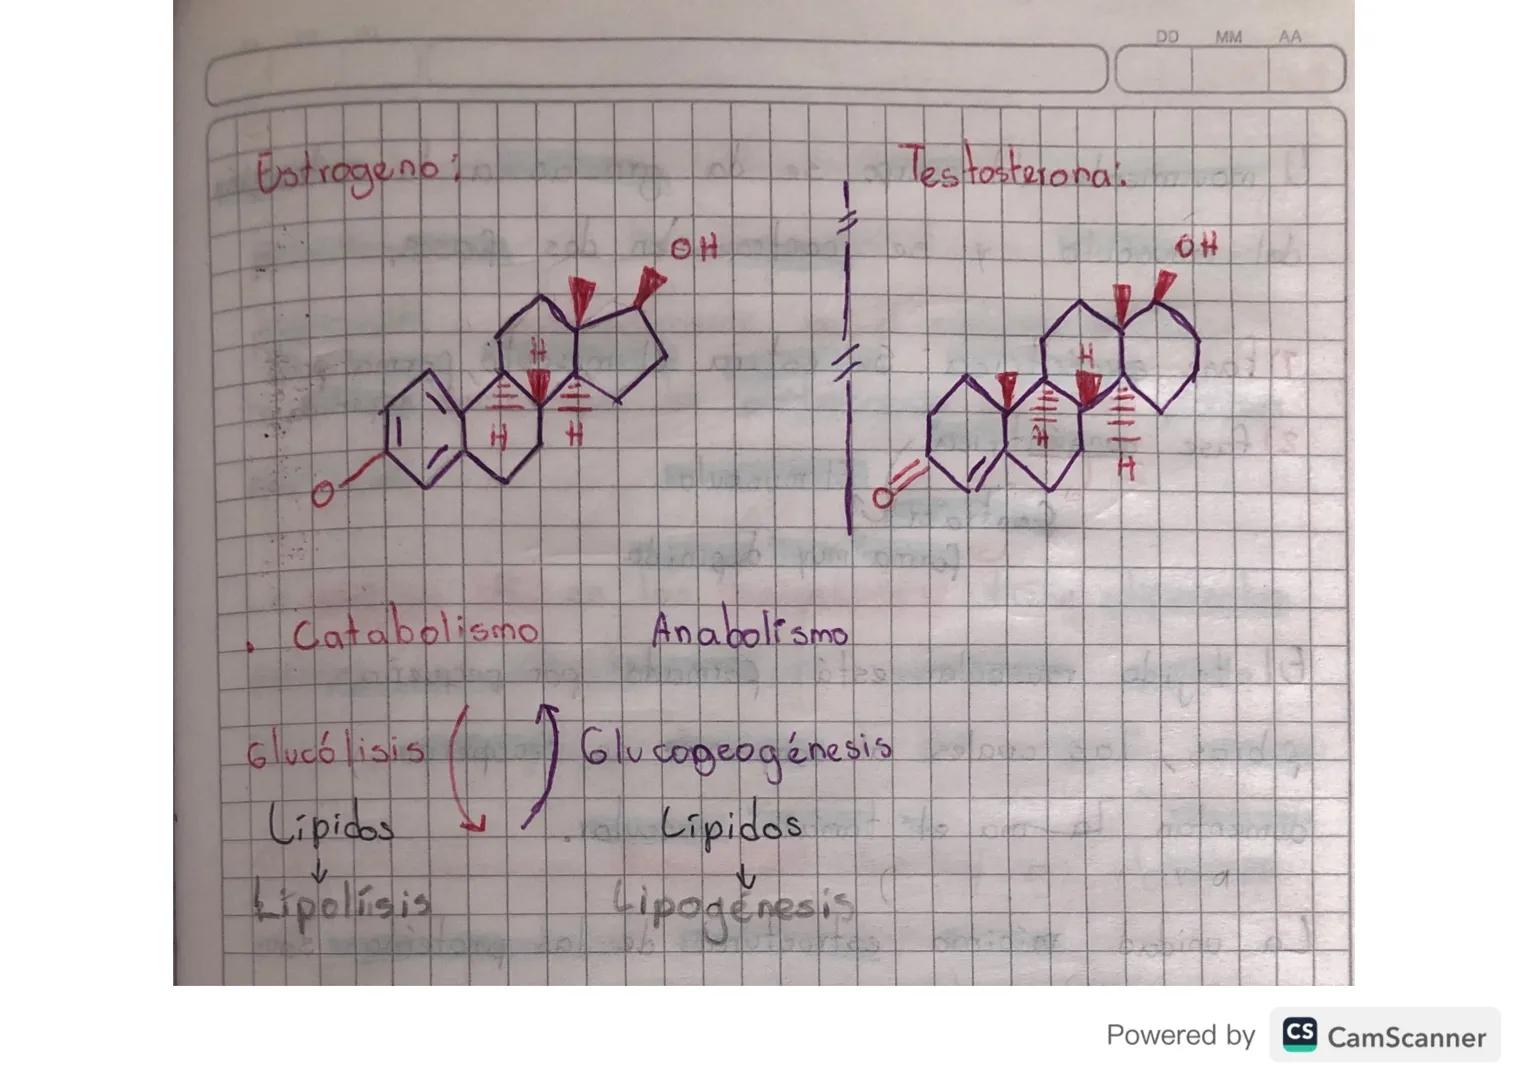 DD MM AA
Estrogeno:
Testosterona:
OH
OH
H
H
H
H
H
H
O
O
Catabolismo
Anabolismo
Glucólisis
Glucogeogénesis
Lípidos
Lípidos
Lipolísis
Lipogénesis
Powered by CS CamScanner